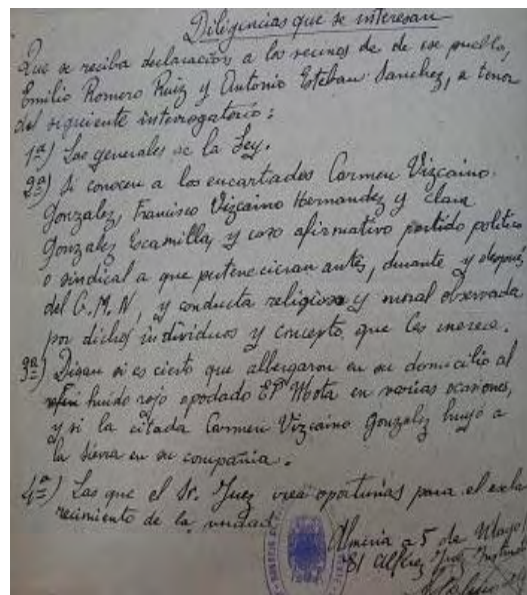 Diligencias que se interesan
Que se reciba declaración a los vecinos de de ese pueblo,
Emilio Romero Ruiz y Antonio Esteban Sanchez, a tenor
del siguiente interrogatorio:
1ª) Las generales de la Ley.
2ª) Si conocen a los encartados Carmen Vizcaino
Gonzalez, Francisco Vizcaino Hernandez y Clara
Gonzalez Escamilla, y caso afirmativo partido politico
o sindical a que pertenecieran antes, durante y despues
del G.M.N, y conducta religiosa y moral observada
por dichos individuos y concepto que les merece.
3ª) Digan si es cierto que albergaron en su domicilio al
huido rojo apodado El Mota en varias ocasiones,
y si la citada Carmen Vizcaino Gonzalez huyó a
la Sierra en su compañia.
4ª) Las que el Sr. Juez crea oportunas para el escla
recimiento de la verdad
Almeria a 5 de Mayo,
El Alférez Juez